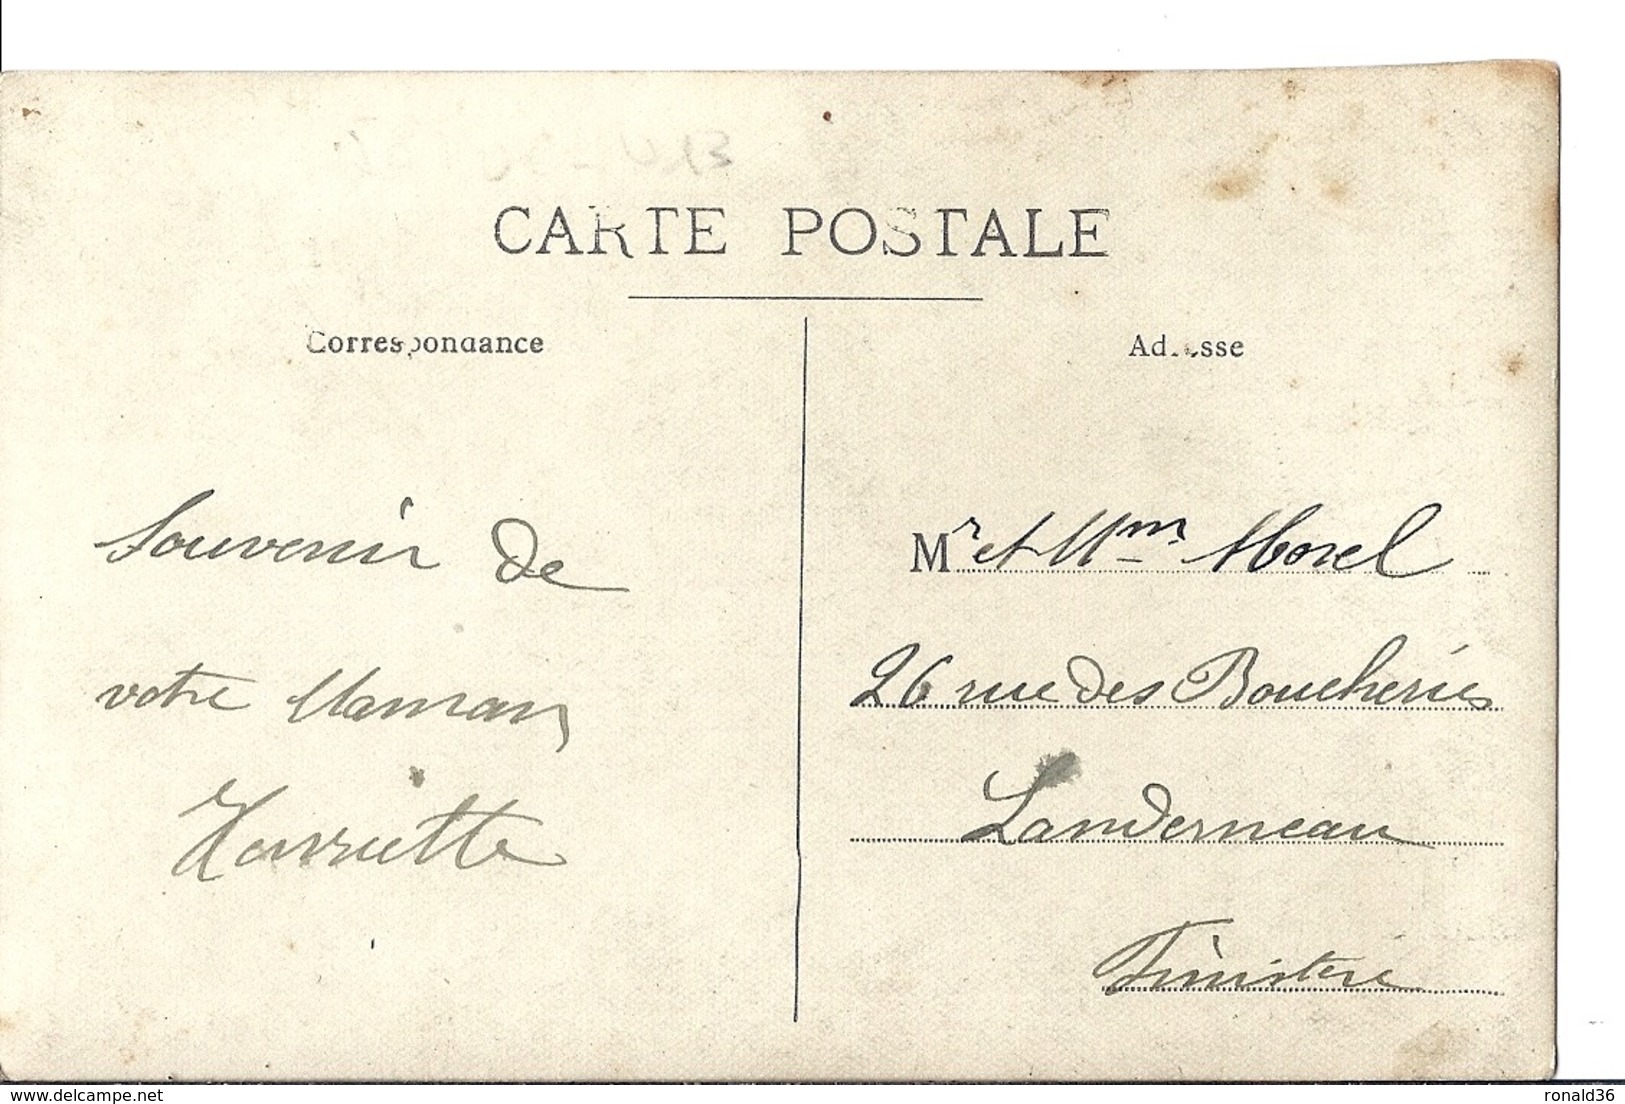 CARTE POSTALE
Correspondance
Adresse
Souvenir de
votre Maman
Henriette
Mr et Mme Morel
26 rue des Boucheries
Landerneau
Finistère
delcampe.net
ronald36